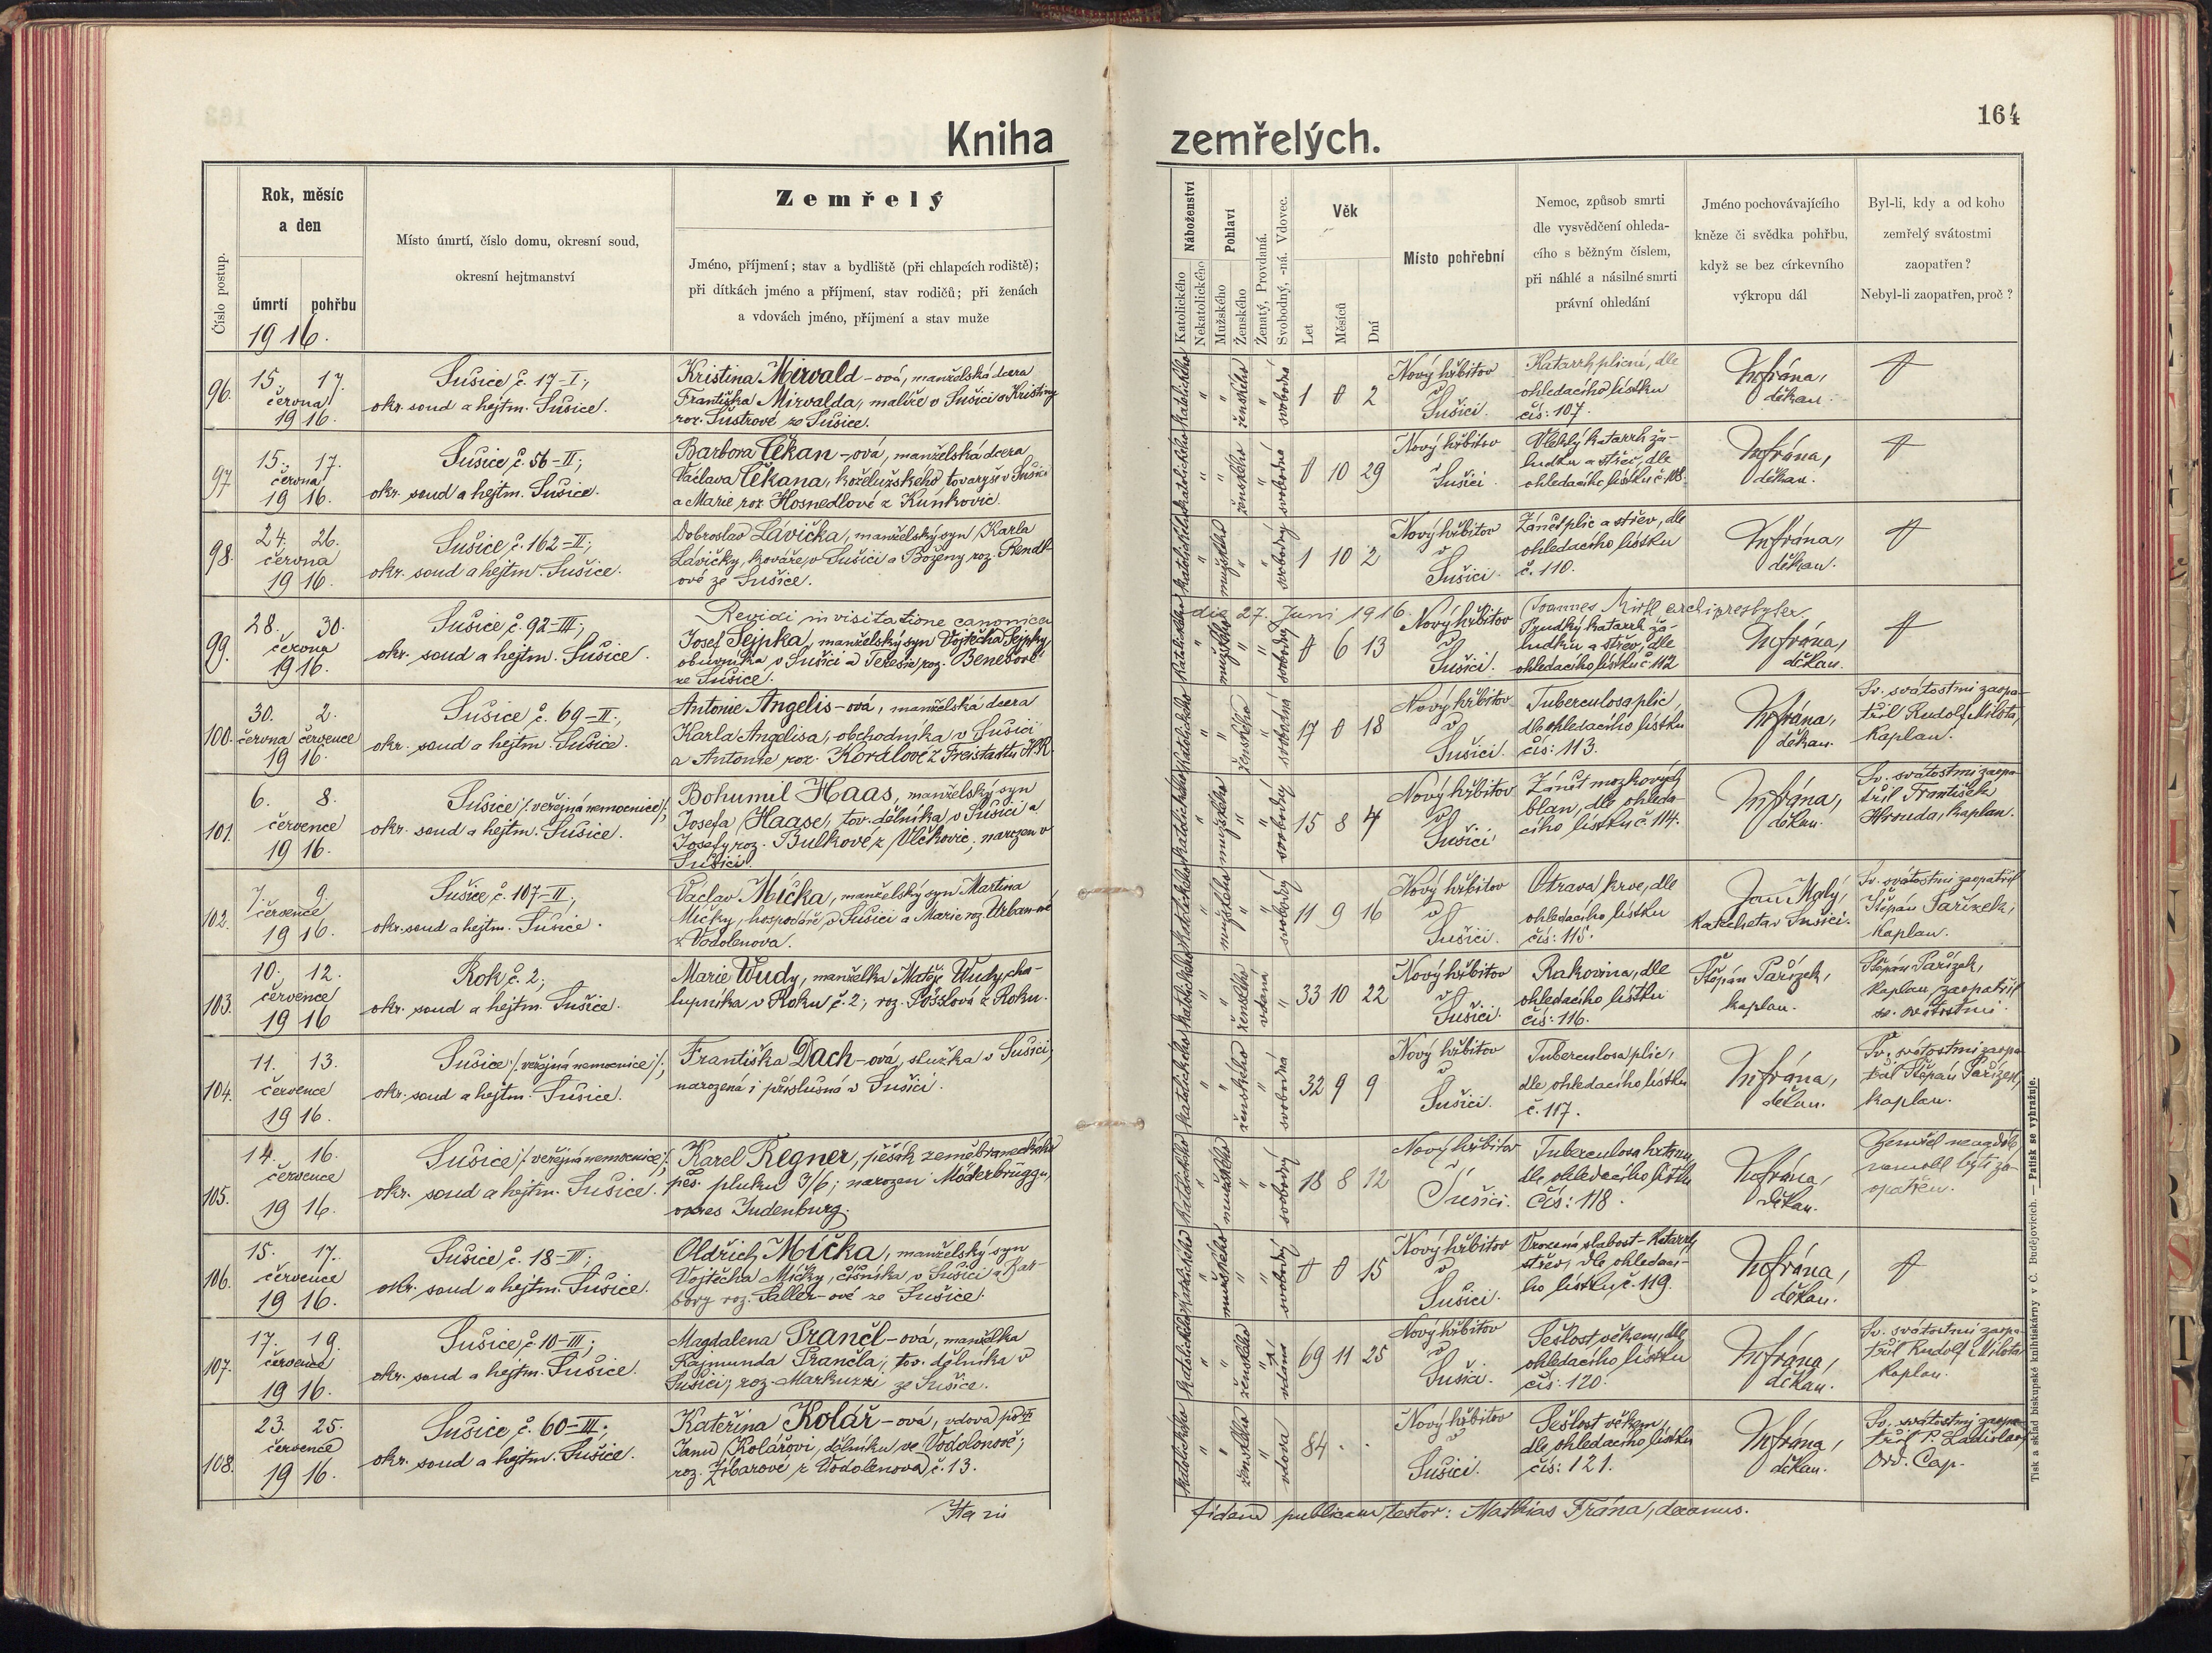 164
Kniha zemřelých.
Číslo postup.
Rok, měsíc
a den
úmrtí pohřbu
1916.
Místo úmrtí, číslo domu, okresní soud,
okresní hejtmanství
Zemřelý
Jméno, příjmení; stav a bydliště (při chlapcích rodiště);
při dítkách jméno a příjmení, stav rodičů; při ženách
a vdovách jméno, příjmení a stav muže
Náboženství
Katolického
Nekatolického
Pohlaví
Mužského
Ženského
Ženatý, Provdaná.
Svobodný, -ná. Vdovec.
Věk
Let
Měsíců
Dní
Místo pohřební
Nemoc, způsob smrti
dle vysvědčení ohleda-
cího s běžným číslem,
při náhlé a násilné smrti
právní ohledání
Jméno pochovávajícího
kněze či svědka pohřbu,
když se bez církevního
výkropu dál
Byl-li, kdy a od koho
zemřelý svátostmi
zaopatřen?
Nebyl-li zaopatřen, proč?
96.
15. 17.
června
1916.
Sušice č. 17-I;
okr. soud a hejtm. Sušice.
Kristina Mirvald-ová, manželská dcera
Františka Mirvalda, malíře v Sušici a Kristiny
roz. Šustrové ze Sušice.
katolického
ženského
svobodná
1 0 2
Nový hřbitov
v
Sušici.
Katarrh plicní, dle
ohledacího lístku
čís: 107.
děkan.
97
15. 17.
června
1916.
Sušice č. 56-II;
okr. soud a hejtm. Sušice.
Barbora Čekan-ová, manželská dcera
Václava Čekana, koželužského tovaryše v Sušici
a Marie roz. Hosnedlové z Kunkovic.
katolického
ženského
svobodná
0 10 29
Nový hřbitov
v
Sušici
Vleklý katarrh ža-
ludku a střev, dle
ohledacího lístku č. 108.
děkan.
98.
24. 26.
června
1916.
Sušice, č. 162-II;
okr. soud a hejtm. Sušice.
Dobroslav Lávička, manželský syn Karla
Lávičky, kováře v Sušici a Boženy roz. Rendl-
ové ze Sušice.
katolického
mužského
svobodný
1 10 2
Nový hřbitov
v
Sušici.
Zánět plic a střev, dle
ohledacího lístku
č. 110.
děkan.
Revidi in visitatione canonica
die 27. Juni 1916. Joannes archipresbyter
99.
28. 30.
června
1916.
Sušice, č. 92-III;
okr. soud a hejtm. Sušice.
Josef Sejpka, manželský syn Vojtěcha Sejpky,
obuvníka v Sušici a Terezie, roz. Benešové
ze Sušice.
mužského
svobodný
0 6 13
Nový hřbitov
v
Sušici.
Prudký katarrh ža-
ludku a střev, dle
ohledacího lístku č. 112
děkan.
100.
30. 2.
června července
1916.
Sušice č. 69-II;
okr. soud a hejtm. Sušice.
Antonie Angelis-ová, manželská dcera
Karla Angelisa, obchodníka v Sušici
a Antonie roz. Korálové z Freistadtu H.R.
katolického
ženského
svobodná
17 0 18
Nový hřbitov
v
Sušici.
Tuberculosa plic,
dle ohledacího lístku
čís: 113.
děkan.
Sv. svátostmi zaopa-
třil Rudolf Milota,
kaplan.
101.
6. 8.
července
1916.
Sušice /: veřejná nemocnice :/;
okr. soud a hejtm. Sušice.
Bohumil Haas, manželský syn
Josefa Haase, tov. dělníka v Sušici a
Josefy roz. Bulkové z Vlčkovic, narozen v
Sušici.
katolického
mužského
svobodný
15 8 4
Nový hřbitov
v
Sušici
Zánět mozkových
blan, dle ohleda-
cího lístku č. 114.
děkan.
Sv. svátostmi zaopa-
třil František
Hrouda, kaplan.
102.
7. 9.
července
1916.
Sušice, č. 107-II;
okr. soud a hejtm. Sušice.
Václav Míčka, manželský syn Martina
Míčky, hospodáře v Sušici a Marie roz. Urban-né
z Vodolenova.
katolického
mužského
svobodný
11 9 16
Nový hřbitov
v
Sušici.
Otrava krve, dle
ohledacího lístku
čís: 115.
Jan Malý,
katecheta v Sušici.
Sv. svátostmi zaopatřil
Štěpán Pařízek,
kaplan.
103.
10. 12.
července
1916
Rok č. 2;
okr. soud a hejtm. Sušice.
Marie Wudy, manželka Matěje Wudy, cha-
lupníka v Roku č. 2; roz. Pöšslová z Roku.
katolického
ženského
vdaná
33 10 22
Nový hřbitov
v
Sušici.
Rakovina, dle
ohledacího lístku
čís: 116.
Štěpán Pařízek,
kaplan.
Štěpán Pařízek,
kaplan, zaopatřil
sv. svátostmi.
104.
11. 13.
července
1916.
Sušice /: veřejná nemocnice :/;
okr. soud a hejtm. Sušice.
Františka Dach-ová, služka v Sušici,
narozená i příslušná v Sušici.
katolického
ženského
svobodná
32 9 9
Nový hřbitov
v
Sušici.
Tuberculosa plic,
dle ohledacího lístku
č. 117.
děkan.
Sv. svátostmi zaopa-
třil Štěpán Pařízek,
kaplan.
105.
14. 16.
července
1916.
Sušice /: veřejná nemocnice :/
okr. soud a hejtm. Sušice.
Karel Regner, pěšák zeměbraneckého
pěš. pluku 3/6; narozen Möderbrüggu,
okres Judenburg.
katolického
mužského
svobodný
18 8 12
Nový hřbitov
v
Sušici.
Tuberculosa hrtanu,
dle ohledacího lístku
Čís: 118.
děkan.
nemohl býti za-
opatřen.
106.
15. 17.
července
1916.
Sušice č. 18-III;
okr. soud a hejtm. Sušice.
Oldřich Míčka, manželský syn
Vojtěcha Míčky, číšníka v Sušici a Bar-
bory roz. Saller-ové ze Sušice.
katolického
mužského
svobodný
0 0 15
Nový hřbitov
v
Sušici.
Vrozená slabost-Katarrh
střev, dle ohledací-
ho lístku, č. 119.
děkan.
107.
17. 19.
července
1916.
Sušice, č. 10-III;
okr. soud a hejtm. Sušice.
Magdalena Prančl-ová, manželka
Rajmunda Prančla, tov. dělníka v
Sušici; roz. Markuzzi ze Sušice.
katolického
ženského
vdaná
69 11 25
Nový hřbitov
v
Sušici.
Sešlost věkem, dle
ohledacího lístku
čís: 120.
děkan.
Sv. svátostmi zaopa-
třil Rudolf Milota
kaplan.
108.
23. 25.
července
1916.
Sušice č. 60-III;
okr. soud a hejtm. Sušice.
Kateřina Kolář-ová, vdova po †
Janu Kolářovi, dělníku ve Vodolenově;
roz. z Vodolenova č. 13.
katolického
ženského
vdova
84 . .
Nový hřbitov
v
Sušici.
Sešlost věkem,
dle ohledacího lístku
čís: 121.
děkan.
Sv. svátostmi zaopa-
třil P. Ladislav
Ord. Cap.
fidem publicam testor: Mathias Frána, decanus.
Tisk a sklad biskupské knihtiskárny v Č. Budějovicích. — Patisk se vyhražuje.